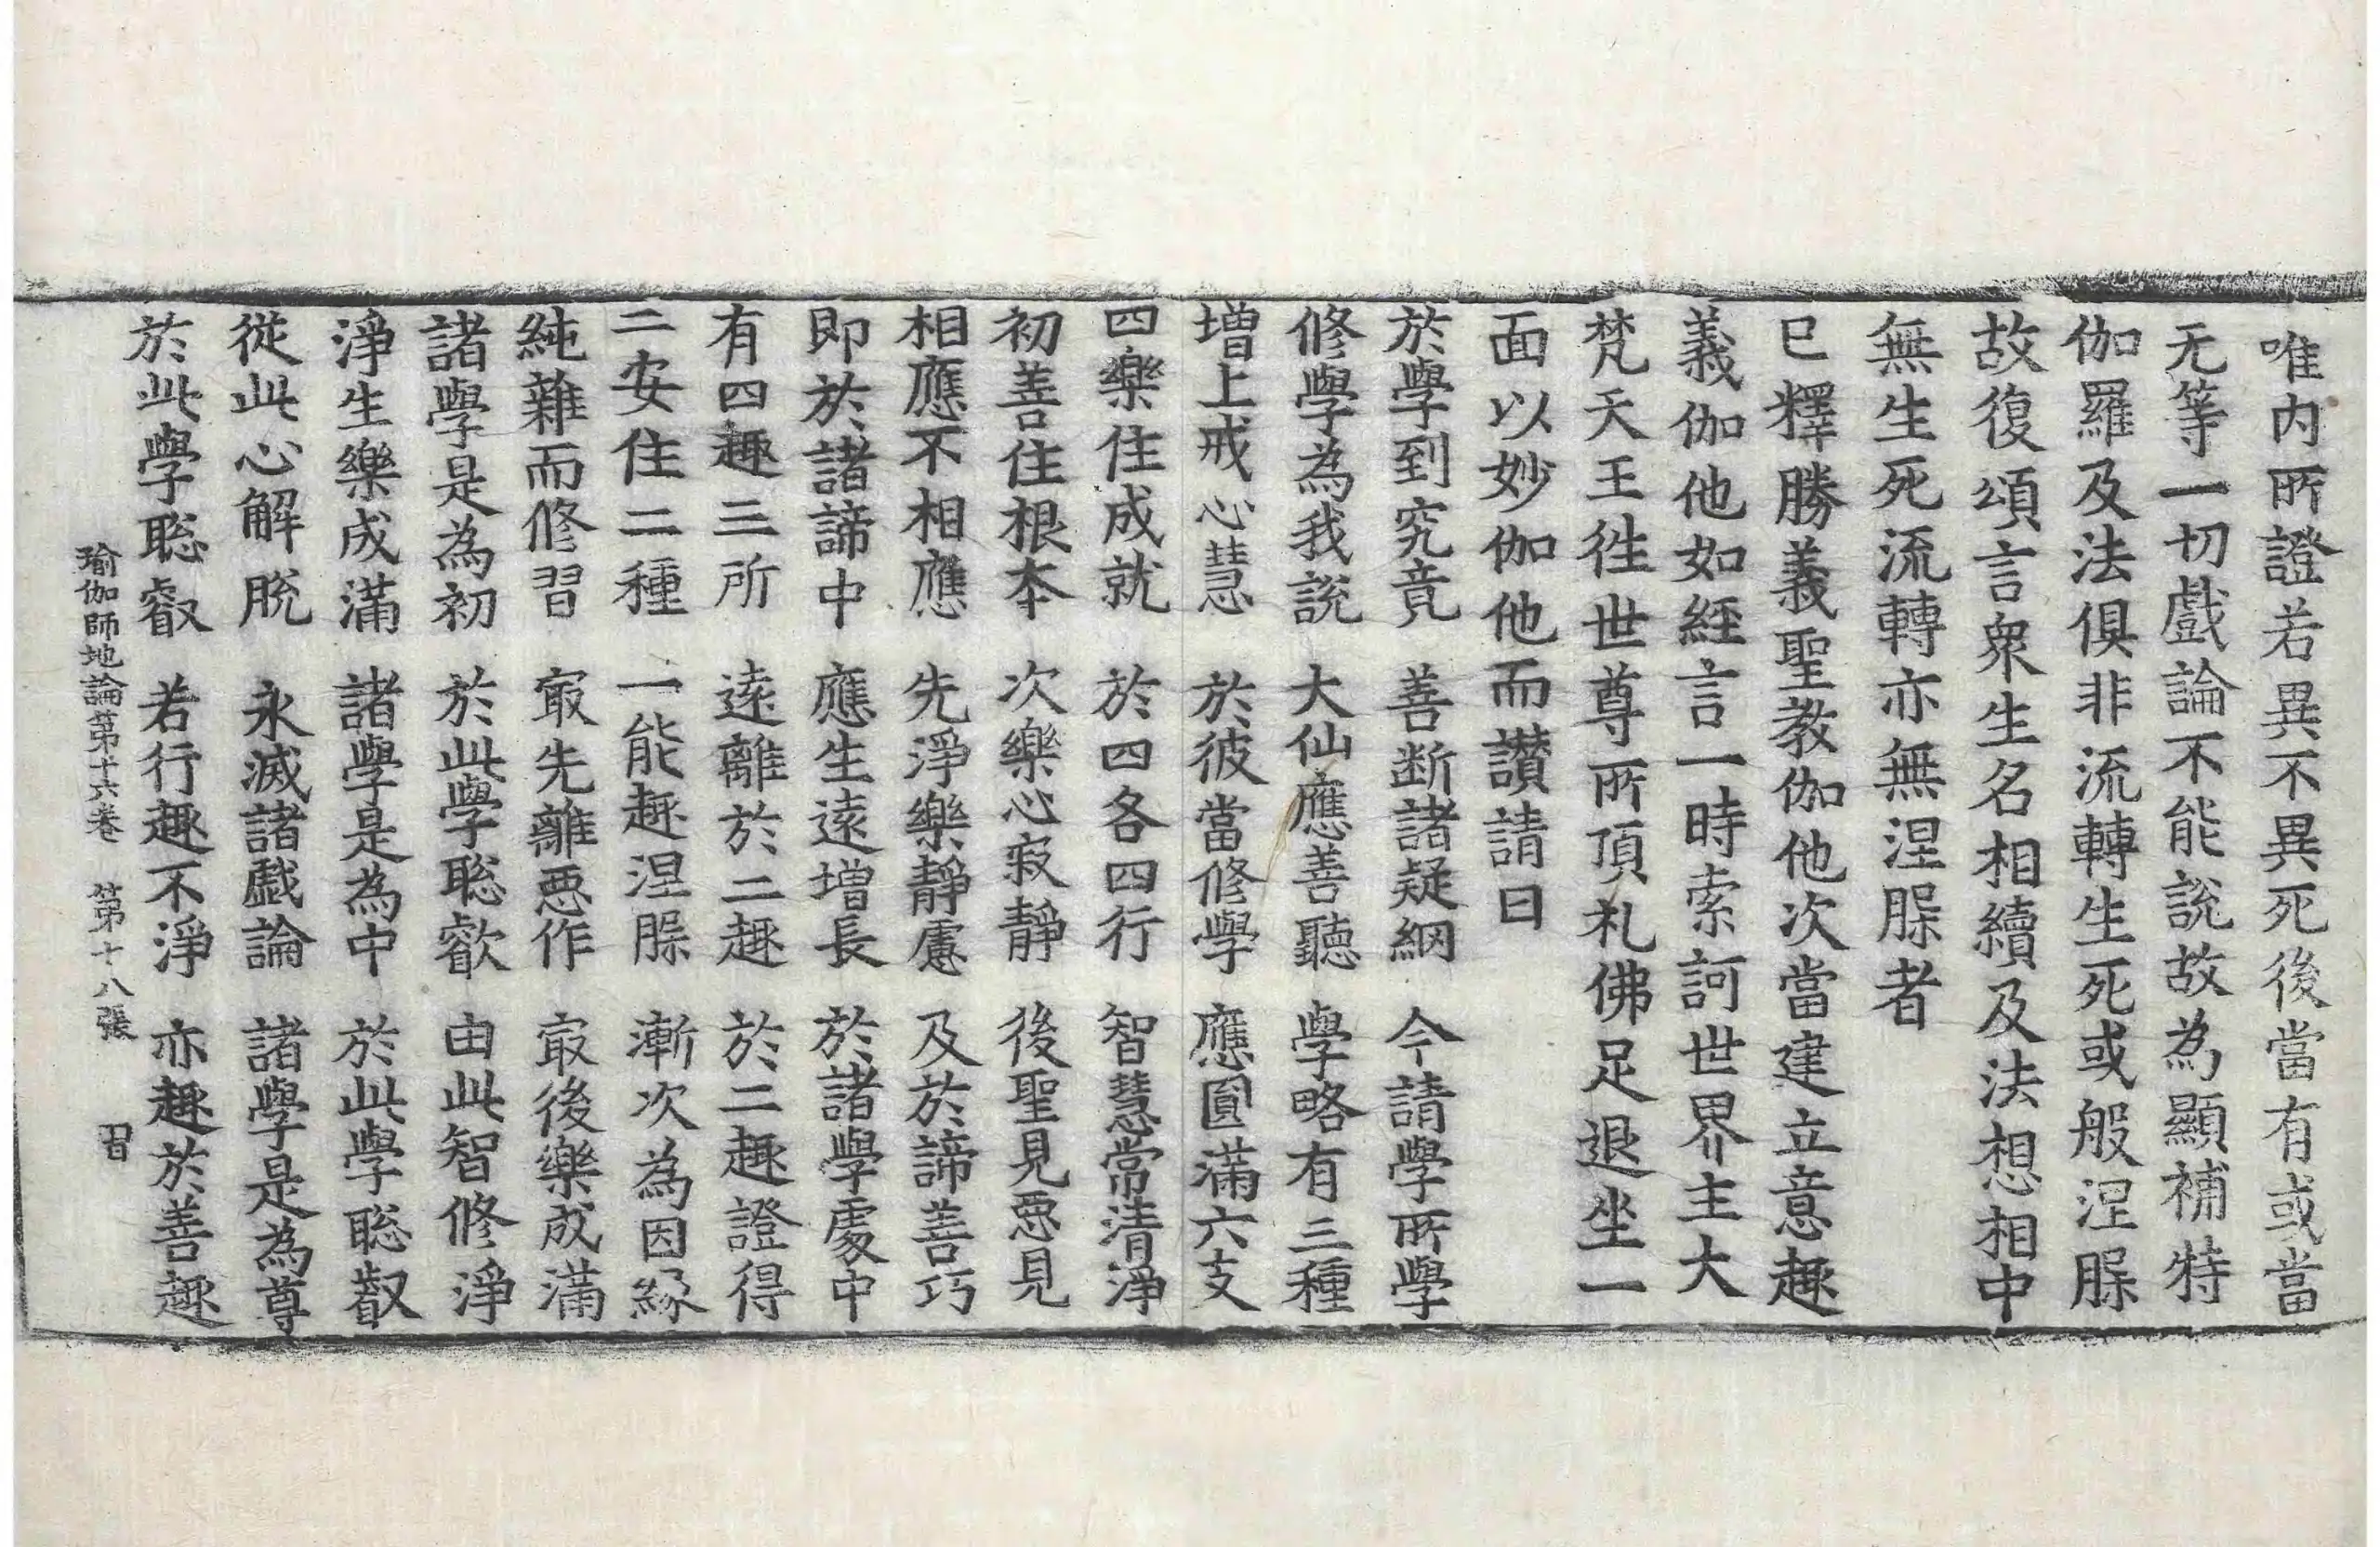 唯内所證若異不異死後當有或當
无等一切戲論不能說故為顯補特
伽羅及法俱非流轉生死或般涅槃
故復頌言衆生名相續及法想相中
無生死流轉亦無涅槃者
已釋勝義聖教伽他次當建立意趣
義伽他如經言一時索訶世界主大
梵天王徃世尊所頂礼佛足退坐一
面以妙伽他而讃請曰
於學到究竟　善断諸疑網　今請學所學
修學為我說　大仙應善聽　學略有三種
增上戒心慧　於彼當修學　應圓滿六支
四樂住成就　於四各四行　智慧常清淨
初善住根本　次樂心寂靜　後聖見惡見
相應不相應　先淨樂靜慮　及於諦善巧
即於諸諦中　應生遠增長　於諸學處中
有四趣三所　遠離於二趣　於二趣證得
二安住二種　一能趣涅槃　漸次為因縁
純雜而修習　㝡先離惡作　㝡後樂成滿
諸學是為初　於此學聡叡　由此智修淨
淨生樂成滿　諸學是為中　於此學聡叡
從此心解脫　永滅諸戲論　諸學是為尊
於此學聡叡　若行趣不淨　亦趣於善趣
瑜伽師地論第十六卷　第十八張　習